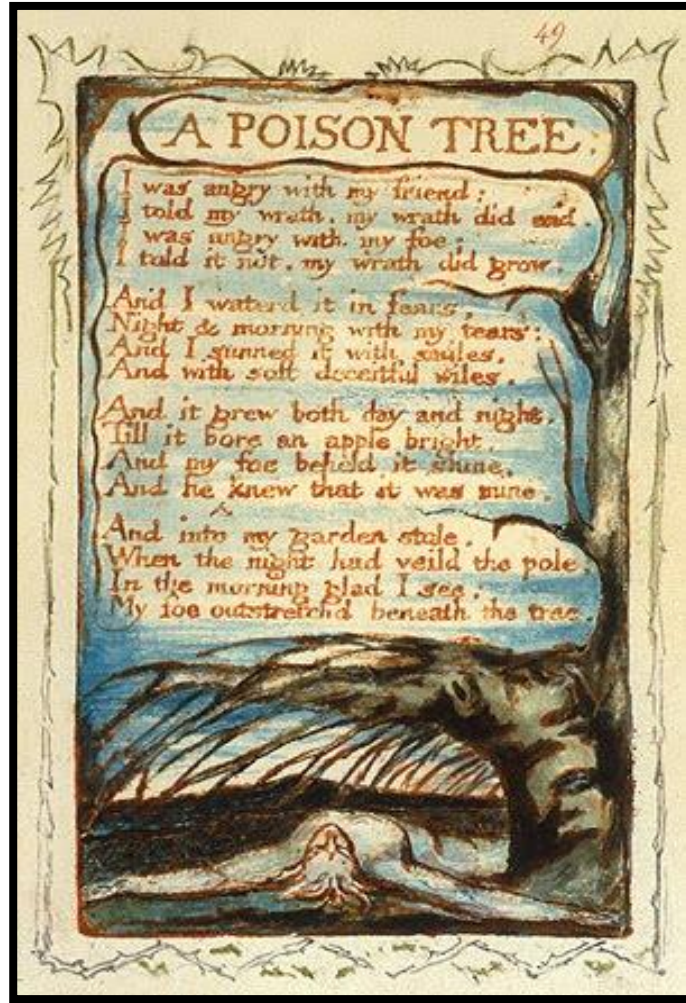 49
A POISON TREE.
I was angry with my friend;
I told my wrath, my wrath did end.
I was angry with my foe:
I told it not, my wrath did grow.
And I waterd it in fears,
Night & morning with my tears:
And I sunned it with smiles,
And with soft deceitful wiles.
And it grew both day and night,
Till it bore an apple bright.
And my foe beheld it shine,
And he knew that it was mine.
And into my garden stole.
When the night had veild the pole;
In the morning glad I see;
My foe outstretchd beneath the tree.